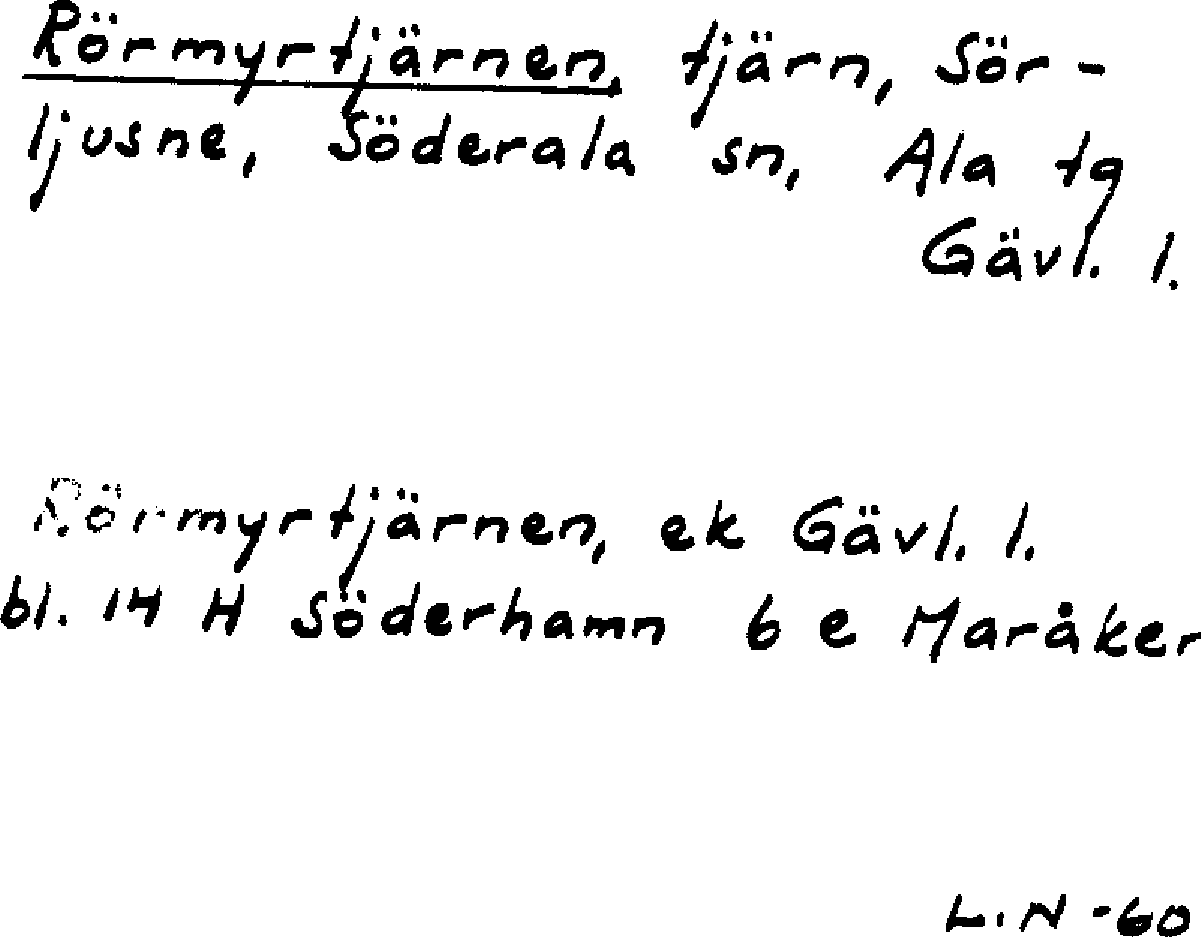 Rörmyrtjärnen, tjärn, Sör-
ljusne, Söderala sn, Ala tg
Gävl. l.
Rörmyrtjärnen, ek Gävl. l.
bl. 14 H Söderhamn 6 e Maråker
L.N -60